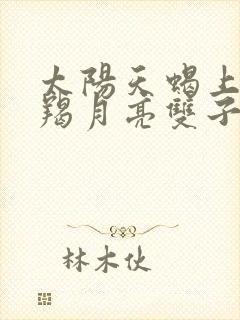 太陽天蝎上
羯月亮雙子
林木伙